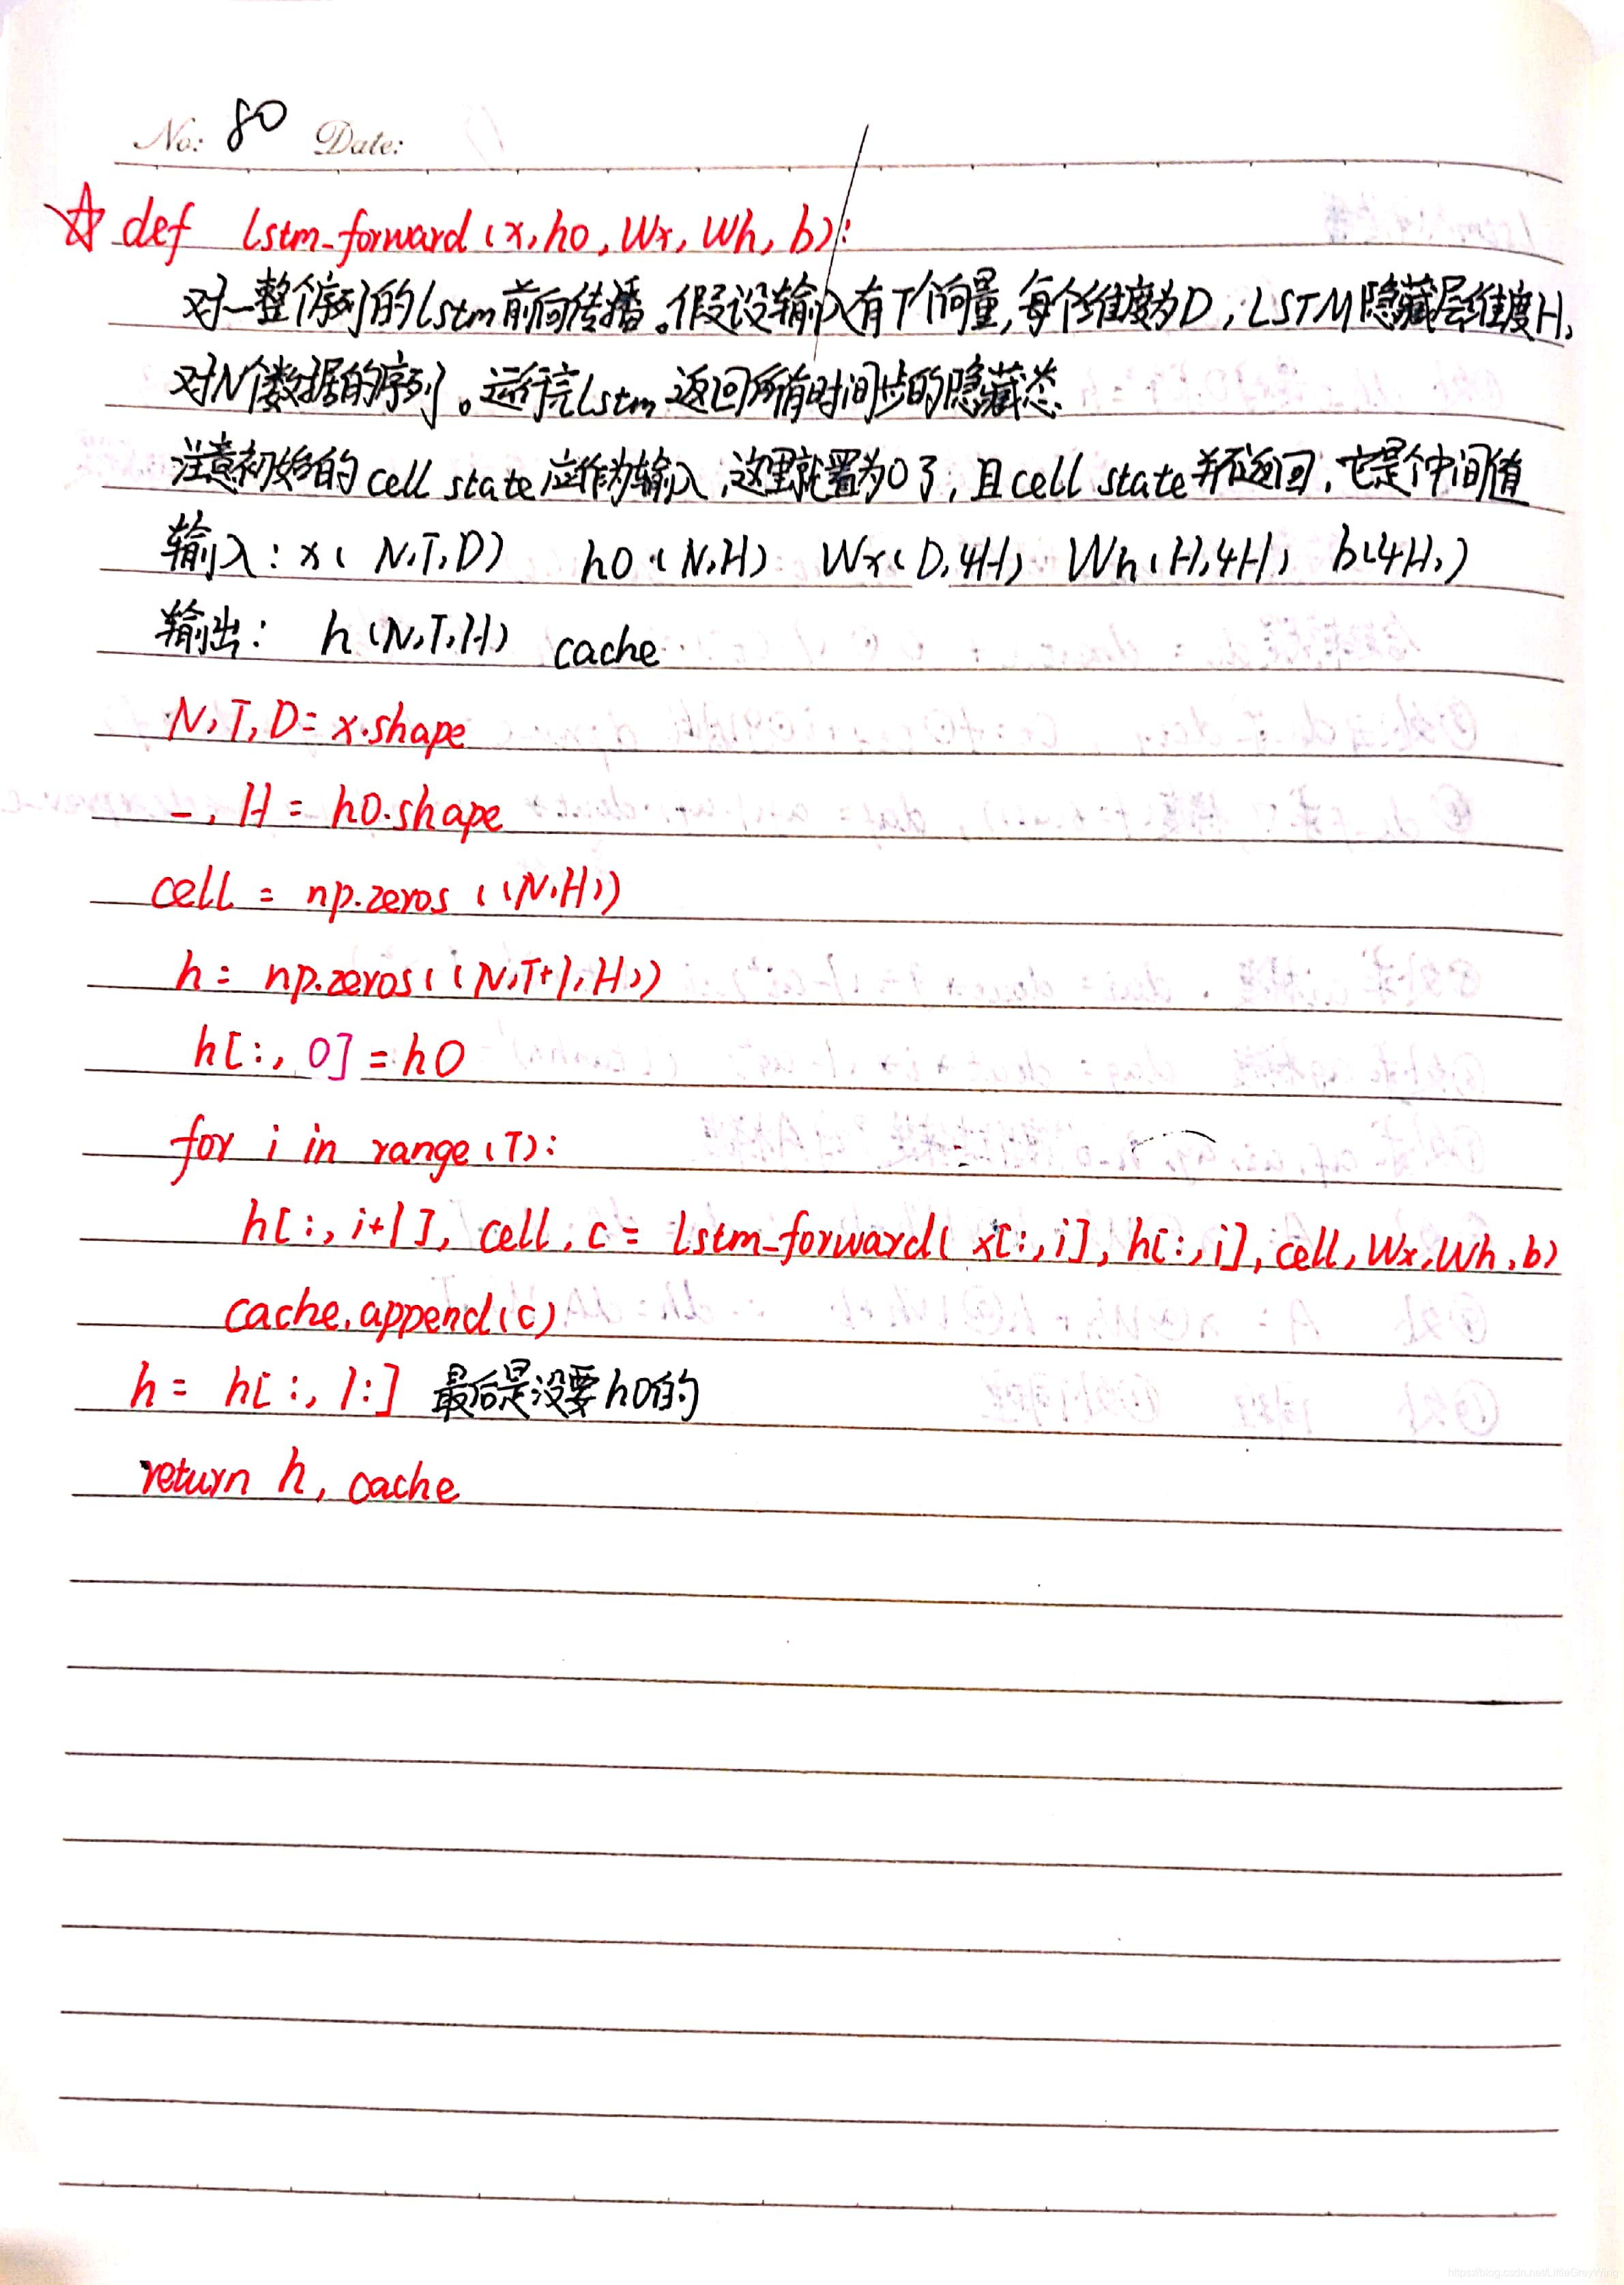 No: 80 Date:
☆ def lstm-forward(x, h0, Wx, Wh, b):
对一整个序列的lstm前向传播。假设输入有T个向量,每个维度为D,LSTM隐藏层维度H,
对N个数据的序列。运行完lstm返回所有时间步的隐藏态.
注意初始的cell state应作为输入,这里就置为0了,且cell state并不返回,它是个中间值
输入: x(N,T,D) h0(N,H) Wx(D,4H) Wh(H,4H) b(4H,)
输出: h(N,T,H) cache
N, T, D = x.shape
_, H = h0.shape
cell = np.zeros((N,H))
h = np.zeros((N,T+1,H))
h[:, 0] = h0
for i in range(T):
h[:, i+1], cell, c = lstm-forward(x[:,i], h[:,i], cell, Wx, Wh, b)
cache.append(c)
h = h[:, 1:] 最后是没要h0的
return h, cache